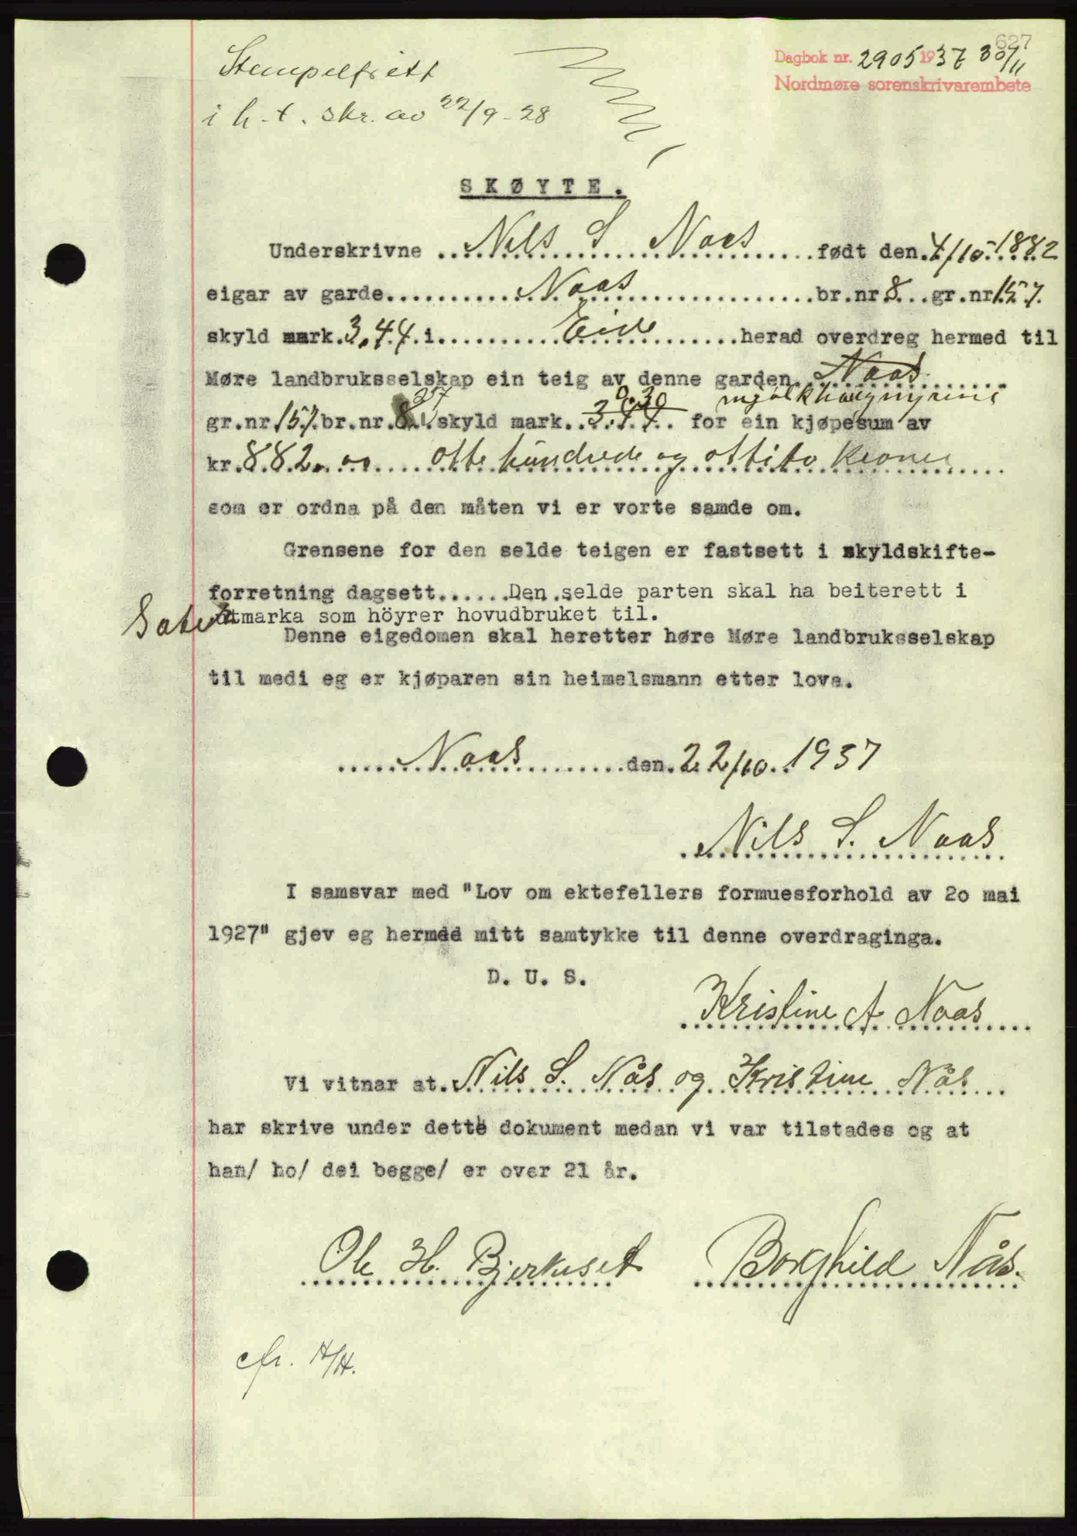 627
Dagbok nr. 2905 1937 30/11
Nordmøre sorenskrivarembete
Stempelfritt
i h. t. skr. av 22/9-28
SKØYTE.
Underskrivne Nils S Naas født den 4/10-1882
eigar av garde Naas br.nr 8 gr.nr 157.
skyld mark. 3,44 i Eide herad overdreg hermed til
Møre landbruksselskap ein teig av denne garden Naas
27 0,30 mjølkhaugmyrene
gr.nr 157. br.nr. 8 skyld mark. 3.44 for ein kjøpesum av
kr. 882.00 otte hundrede og ottito kroner
som er ordna på den måten vi er vorte samde om.
Grensene for den selde teigen er fastsett i skyldskifte-
forretning dagsett......Den selde parten skal ha beiterett i
utmarka som höyrer hovudbruket til.
Denne eigedomen skal heretter høre Møre landbruksselskap
til medi eg er kjøparen sin heimelsmann etter lova.
Naas den. 22/10. 1937
Nils S. Naas
I samsvar med "Lov om ektefellers formuesforhold av 2o mai
1927" gjev eg hermed mitt samtykke til denne overdraginga.
D. U. S.
Kristine A Naas
Vi vitnar at. Nils S. Nås og Kristine Nås
har skrive under dette dokument medan vi var tilstades og at
han/ ho/ dei begge/ er over 21 år.
Ole H. Bjerkeset Borghild Nås.
cfr. H/H.